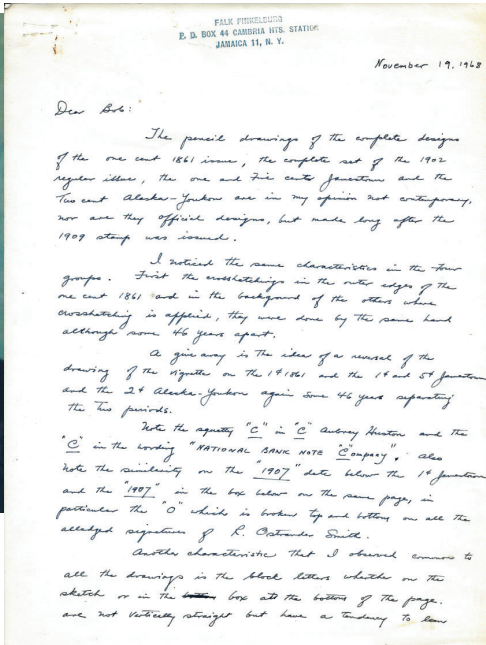 FALK FINKELBURG
P. O. BOX 44 CAMBRIA HTS. STATION
JAMAICA 11, N. Y.
November 19, 1968
Dear Bob:
The pencil drawings of the complete designs
of the one cent 1861 issue, the complete set of the 1902
regular issue, the one and five cents Jamestown and the
Two cent Alaska-Youkon are in my opinion not contemporary,
nor are they official designs, but made long after the
1909 stamp was issued.
I noticed the same characteristics in the four
groups. First the crosshatchings in the outer edges of the
one cent 1861 and in the background of the others where
crosshatching is applied, they were done by the same hand
although some 46 years apart.
A give away is the idea of a removal of the
drawing of the vignette on the 1¢ 1861 and the 1¢ and 5¢ Jamestown
and the 2¢ Alaska-Youkon again some 46 years separating
the two periods.
Note the squatty "C" in "C" Aubrey Huston and the
"C" in the wording "NATIONAL BANK NOTE "Company". Also
Note the similarity on the "1907" date below the 1¢ Jamestown
and the "1907" in the box below on the same page, in
particular the "O" which is broken top and bottom on all the
alledged signatures of R. Ostrander Smith.
Another characteristic that I observed common to
all the drawings is the block letters whether on the
sketch or in the box at the bottom of the page.
are not vertically straight but have a tendency to lean